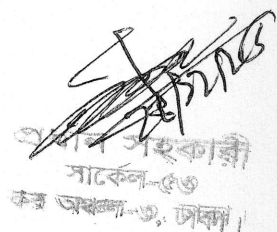 প্রধান সহকারী
সার্কেল-৫৬
কর অঞ্চল-৩, ঢাকা।